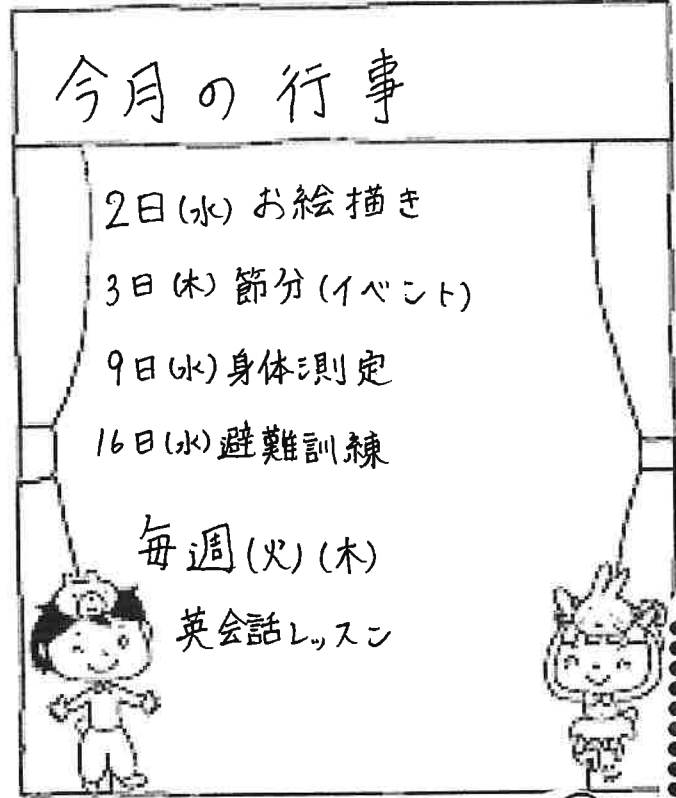 今月の行事
2日(水)お絵描き
3日(木)節分(イベント)
9日(水)身体測定
16日(水)避難訓練
毎週(火)(木)
英会話レッスン